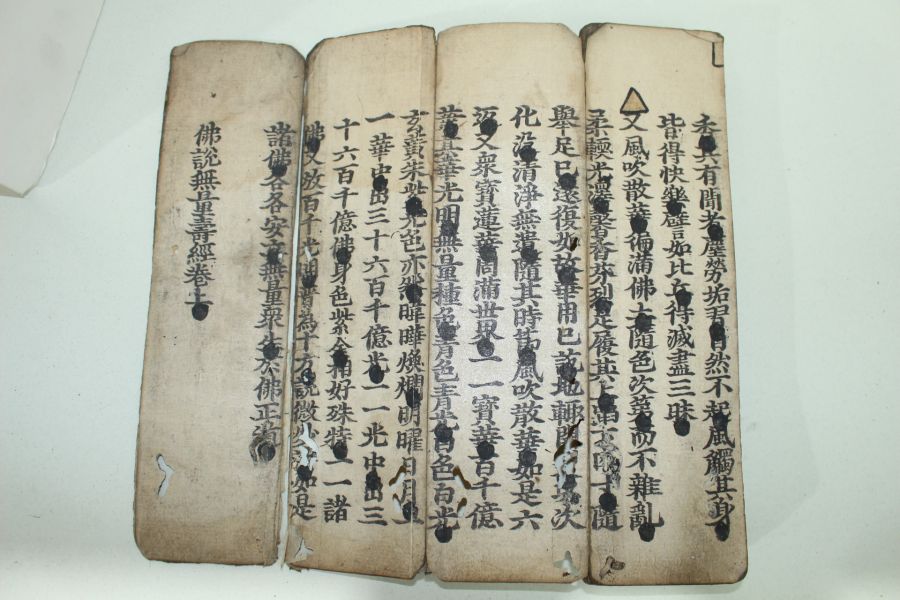 香其有聞者塵勞垢習自然不起風觸其身
皆得快樂譬如比丘得滅盡三昧
又風吹散華徧滿佛土隨色次第而不雜亂
柔輭光澤馨香芬列足履其上下四寸隨
舉足已還復如故華用已訖地輒開次
化沒清淨無遺隨其時節風吹散華如是六
返又衆寶蓮華周滿世界一一寶華百千億
葉其華光明無量種色青色青光白色白光
玄黃朱紫光色亦然暐曄煥爛明曜日月一
一華中出三十六百千億光一一光中出三
十六百千億佛身色紫金相好殊特一一諸
佛又放百千光明普為十方說微妙法如是
諸佛各各安立無量衆生於佛正道
佛說無量壽經卷上